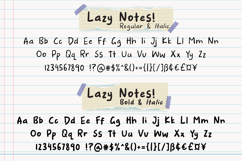 Lazy Notes!
Regular & Italic
Aa Bb Cc Dd Ee Ff Gg Hh Ii Jj Kk Ll Mm Nn
Oo Pp Qq Rr Ss Tt Uu Vv Ww Xx Yy Zz
1234567890 !?@#$%^&()-+={}[]/|β¢£€¤¥
Lazy Notes!
Bold & Italic
Aa Bb Cc Dd Ee Ff Gg Hh Ii Jj Kk Ll Mm Nn
Oo Pp Qq Rr Ss Tt Uu Vv Ww Xx Yy Zz